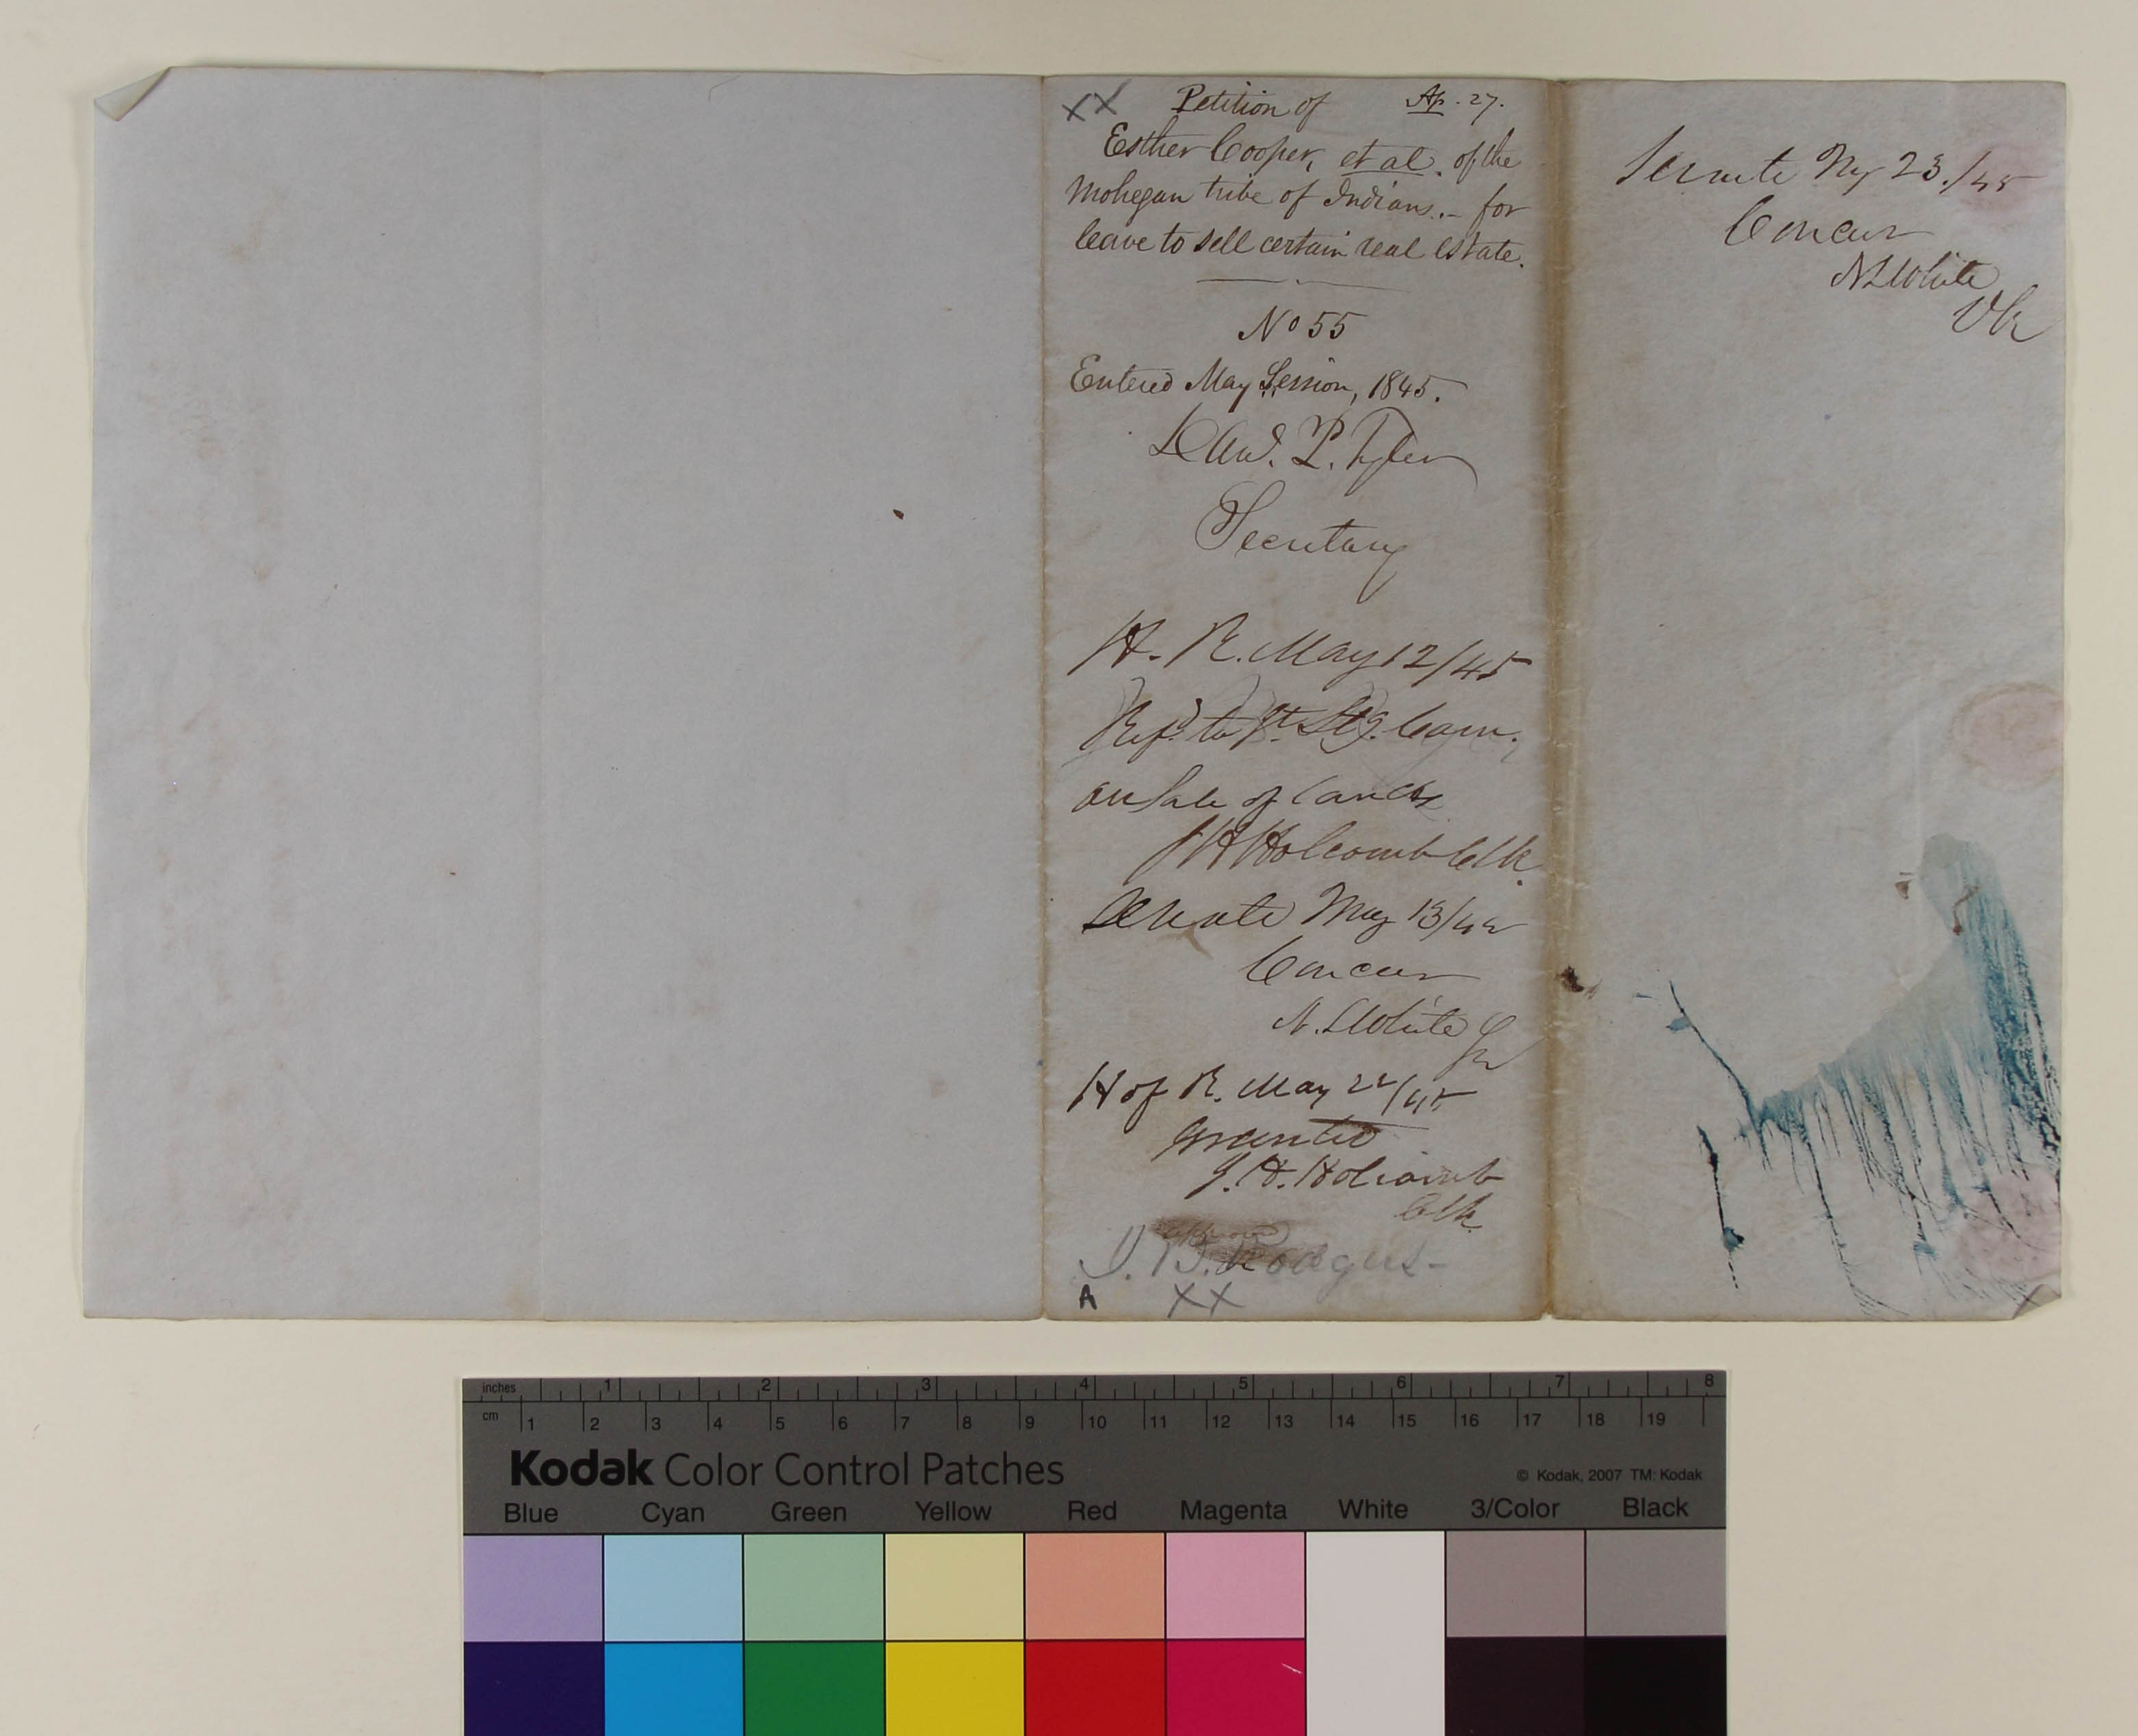 XX Petition of Ap. 27.
Esther Cooper, et al. of the
Mohegan tribe of Indians. - for
leave to sell certain real estate.
No 55
Entered May Session, 1845.
P. Tyler
Secretary
H. R. May 12/45
Refd. to Jt. Stg. Com.
on Sale of Lands
J H Holcomb Clk.
Senate May 13/45
Concur
N. L White
H of R. May 22/45
Granted
J. H. Holcomb
Clk.
A XX
Senate My 23./45
Concur
N L White
inches 1 2 3 4 5 6 7 8
cm 1 2 3 4 5 6 7 8 9 10 11 12 13 14 15 16 17 18 19
Kodak Color Control Patches © Kodak, 2007 TM: Kodak
Blue Cyan Green Yellow Red Magenta White 3/Color Black